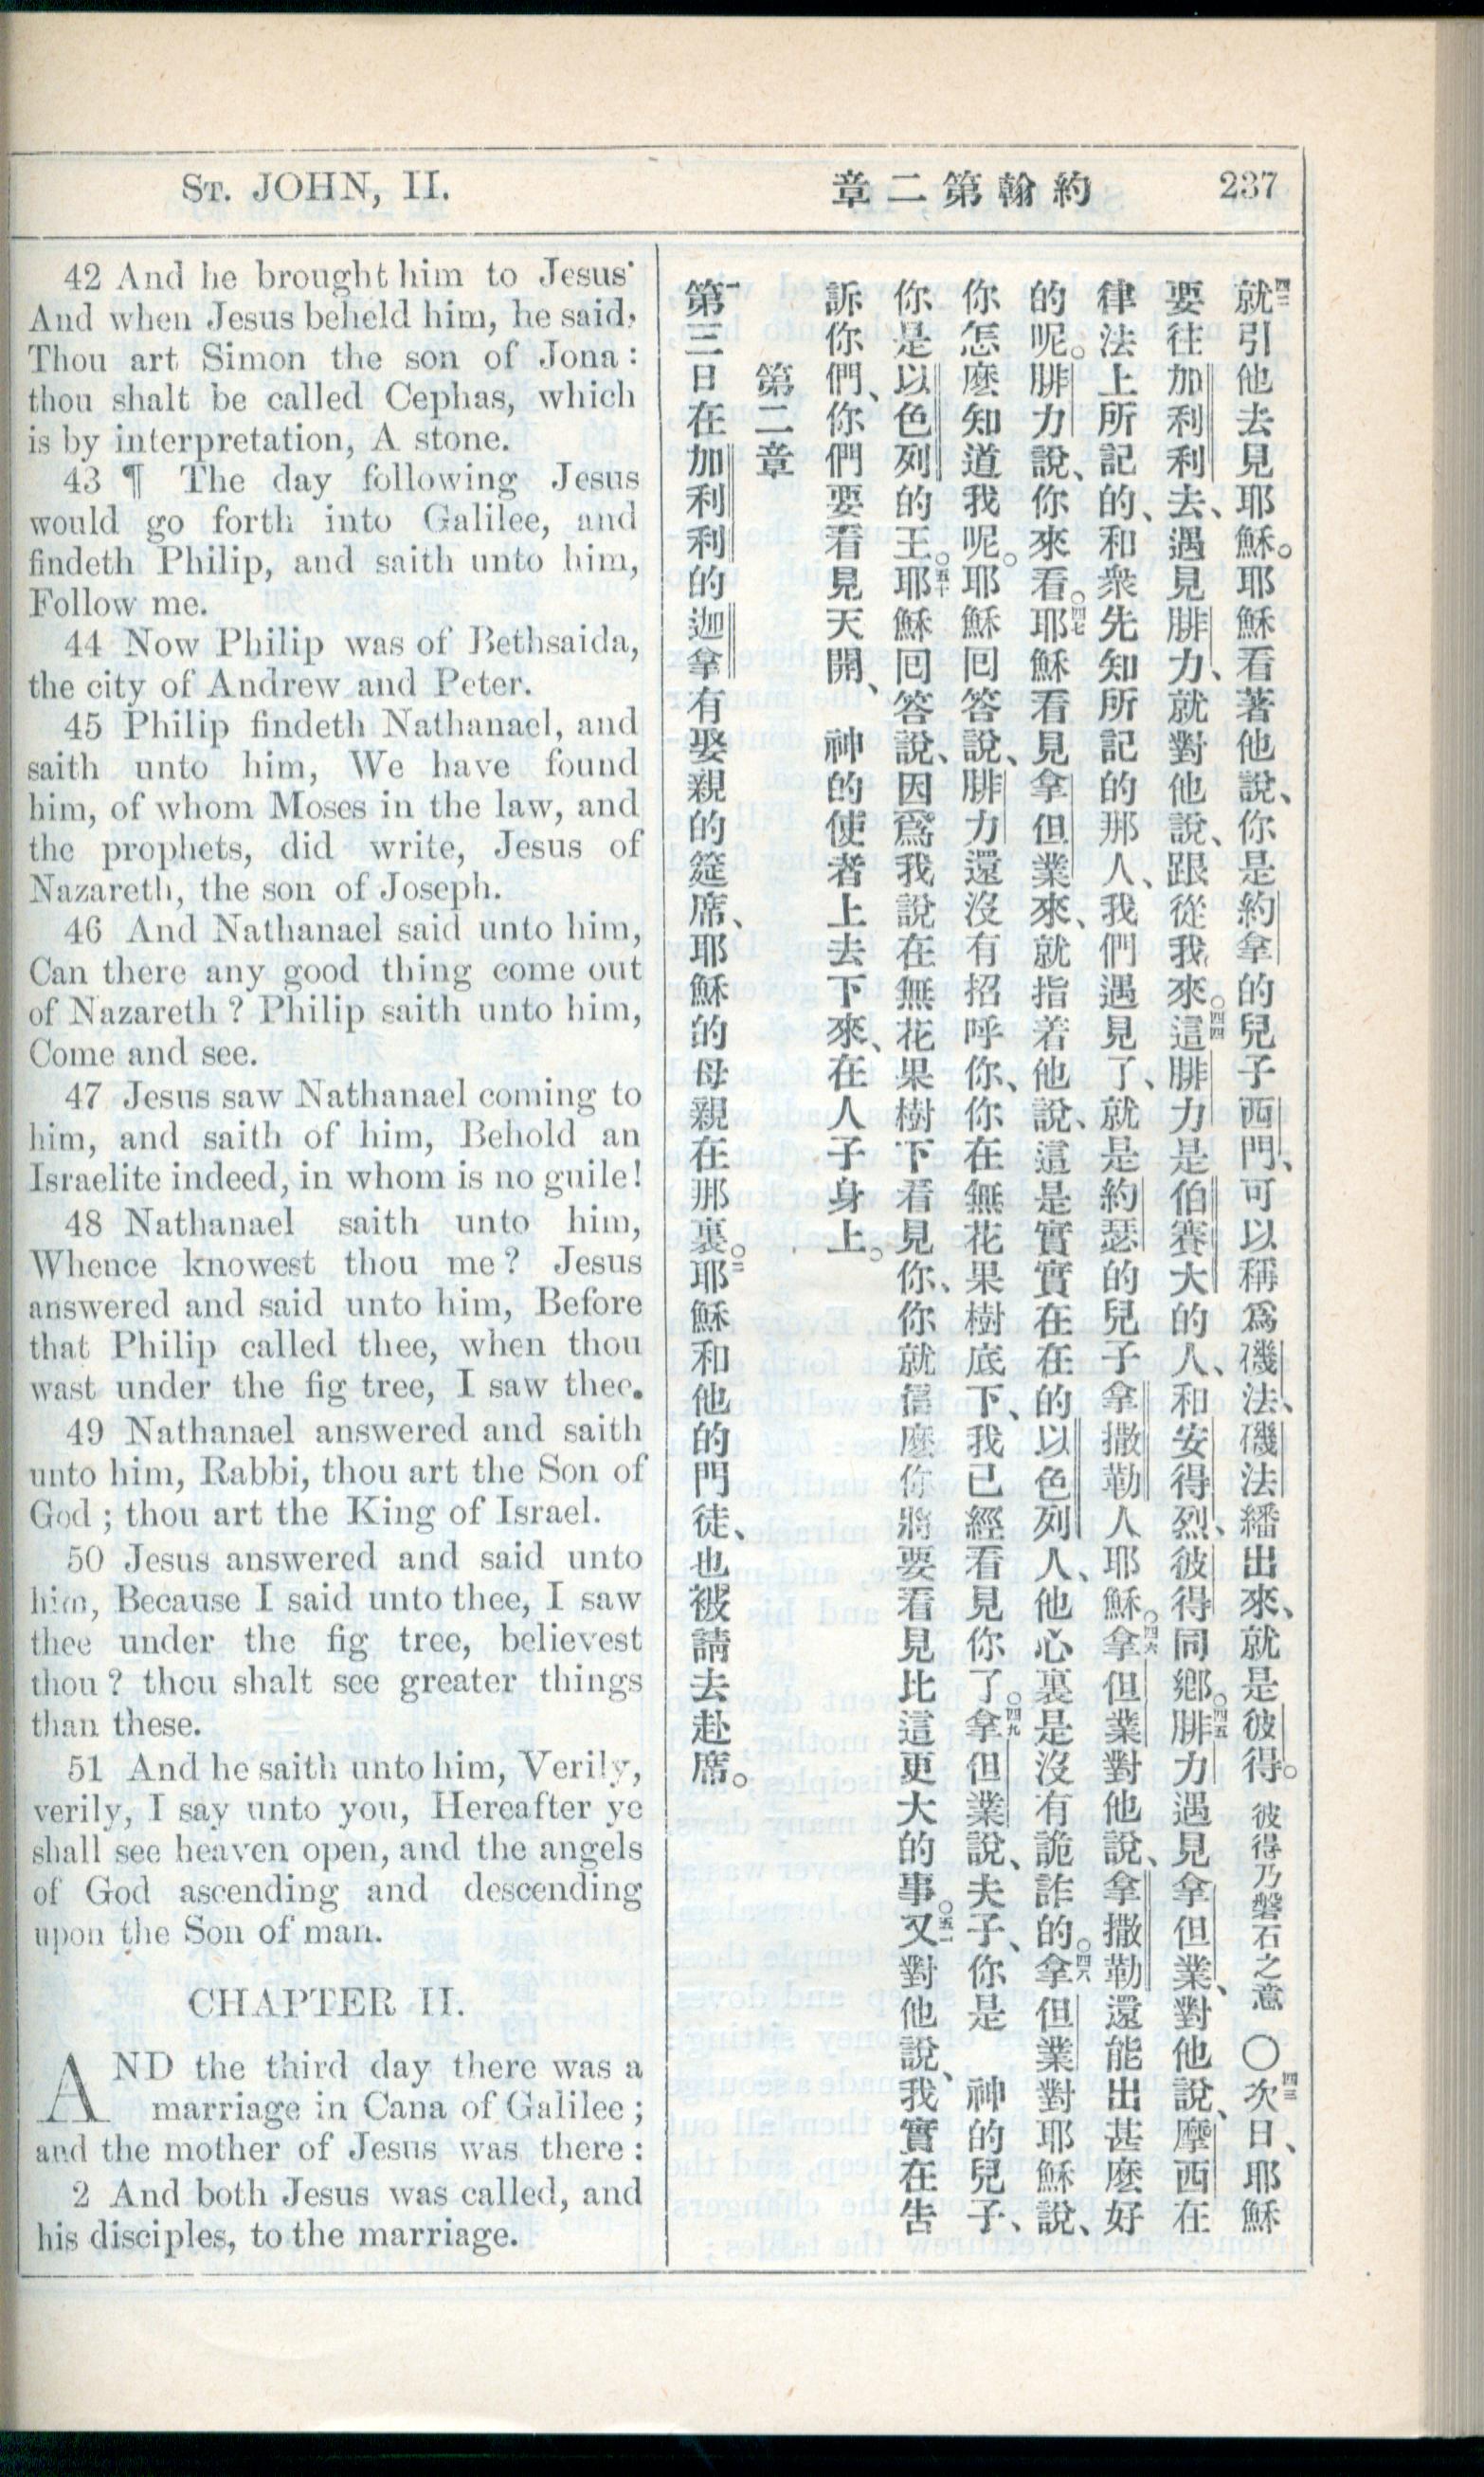 ST. JOHN, II.
章二第翰約
237
42 And he brought him to Jesus·
And when Jesus beheld him, he said,
Thou art Simon the son of Jona:
thou shalt be called Cephas, which
is by interpretation, A stone.
43 ¶ The day following Jesus
would go forth into Galilee, and
findeth Philip, and saith unto him,
Follow me.
44 Now Philip was of Bethsaida,
the city of Andrew and Peter.
45 Philip findeth Nathanael, and
saith unto him, We have found
him, of whom Moses in the law, and
the prophets, did write, Jesus of
Nazareth, the son of Joseph.
46 And Nathanael said unto him,
Can there any good thing come out
of Nazareth? Philip saith unto him,
Come and see.
47 Jesus saw Nathanael coming to
him, and saith of him, Behold an
Israelite indeed, in whom is no guile!
48 Nathanael saith unto him,
Whence knowest thou me? Jesus
answered and said unto him, Before
that Philip called thee, when thou
wast under the fig tree, I saw thee.
49 Nathanael answered and saith
unto him, Rabbi, thou art the Son of
God; thou art the King of Israel.
50 Jesus answered and said unto
him, Because I said unto thee, I saw
thee under the fig tree, believest
thou? thou shalt see greater things
than these.
51 And he saith unto him, Verily,
verily, I say unto you, Hereafter ye
shall see heaven open, and the angels
of God ascending and descending
upon the Son of man.
CHAPTER II.
AND the third day there was a
marriage in Cana of Galilee;
and the mother of Jesus was there:
2 And both Jesus was called, and
his disciples, to the marriage.
四二就引他去見耶穌。耶穌看著他說、你是約拿的兒子西門、可以稱爲磯法、磯法繙出來、就是彼得。彼得乃磐石之意〇四三次日、耶穌
要往加利利去、遇見腓力、就對他說、跟從我來。四四這腓力是伯賽大的人、和安得烈、彼得同鄉。四五腓力遇見拿但業、對他說、摩西在
律法上所記的、和衆先知所記的那人、我們遇見了、就是約瑟的兒子拿撒勒人耶穌。四六拿但業對他說、拿撒勒還能出甚麽好
的呢。腓力說、你來看。四七耶穌看見拿但業來、就指着他說、這是實實在在的以色列人、他心裏是沒有詭詐的。四八拿但業對耶穌說、
你怎麽知道我呢。耶穌囘答說、腓力還沒有招呼你、你在無花果樹底下、我已經看見你了。四九拿但業說、夫子、你是 神的兒子、
你是以色列的王。五十耶穌囘答說、因爲我說在無花果樹下看見你、你就信麽你將要看見比這更大的事。五一又對他說、我實在告
訴你們、你們要看見天開、 神的使者上去下來、在人子身上。
第二章
一第三日在加利利的迦拿有娶親的筵席、耶穌的母親在那裏。二耶穌和他的門徒、也被請去赴席。